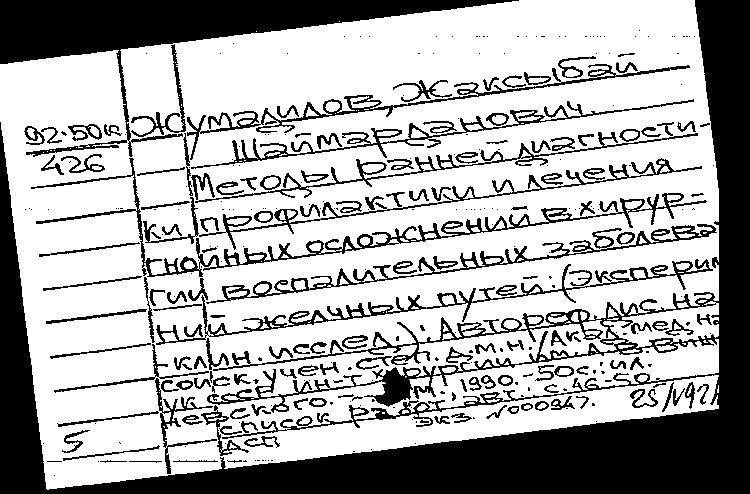 92-50к Жумадилов, Жаксыбай
426 Шаймарданович.
Методы ранней диагности-
ки, профилактики и лечения
гнойных осложнений в хирур-
гии воспалительных заболева
ний желчных путей: (Эксперим
-клин. исслед.): Автореф. дис. на
соиск. учен. степ. д.м.н. /Акад. мед. на
ук СССР, Ин-т хирургии им. А.В. Виш
невского. - М., 1990. - 50с.: ил.
Список работ авт.: с.46-50.
Экз. №000947.
ДСП
5